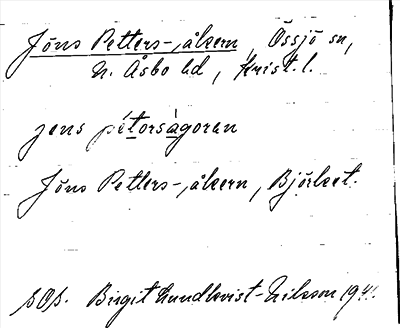 Jöns Petters-,åkern, Össjö sn,
N. Åsbo hd, Krist. l.
jens pétorságoran
Jöns Petters-,åkern, Björket.
sOs. Birgit Lundkvist-Nilsson